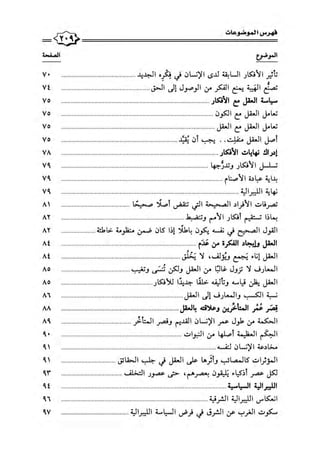 فهرس الموضوعات
٢٠٩
الموضوع الصفحة
تأثير الأفكار السابقة لدى الإنسان في فِكْرِه الجديد ٧٠
تصنُّع الهَيبة يمنع الفكر من الوصول إلى الحق ٧٤
سياسة العقل مع الأفكار ٧٥
تعامل العقل مع الكون ٧٥
تعامل العقل مع العقل ٧٥
أصل العقل منفلِت.. يجب أن يُقيَّد ٧٥
إدراك نهايات الأفكار ٧٨
تسلسل الأفكار وتدرُّجها ٧٩
بداية عبادة الأصنام ٧٩
نهاية الليبرالية ٧٩
تصرفات الأفراد الصحيحة التي تنقض أصلًا صحيحًا ٨١
بماذا تستقيم أفكار الأمم وتنضبط ٨٢
القول الصحيح في نفسه يكون باطلًا إذا كان ضمن منظومة خاطئة ٨٢
العقل وإيجاد الفكرة من عَدَم ٨٤
العقل إناء يَجمع ويُؤلف، لا يَخْلُق ٨٤
المعارف لا تزول غالبًا من العقل ولكن تُنسَى وتغيب ٨٥
العقل يظن قياسه وتأليفه خلقًا جديدًا للأفكار ٨٥
نسبة الكسب والمعارف إلى العقل ٨٦
قِصَر عُمُر المتأخِّرين وعلاقته بالعقل ٨٨
الحكمة من طول عمر الإنسان القديم وقصر المتأخِّر ٨٩
الحِكَم العظيمة أصلها من النبوات ٩٠
مخادعة الإنسان لنفسه ٩١
المؤثرات كالمصائب وأثرها على العقل في جلب الحقائق ٩١
لكل عصر أذكياء يُليقون بعصرهم، حتى عصور التخلف ٩٣
الليبرالية السياسية ٩٤
انعكاس الليبرالية الشرقية ٩٦
سكوت الغرب عن الشرق في فرض السياسة الليبرالية ٩٧